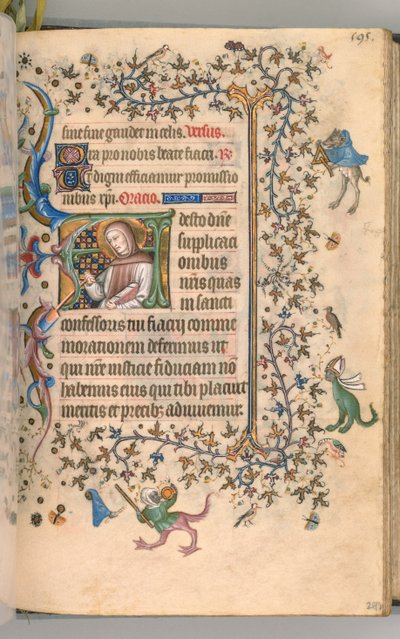 695.
sine fine gaudet in celis. Versus.
Ora pro nobis beate fiacri. R
Ut digni efficiamur promissio
nibus xpi. Oracio.
Adesto dñe
supplicati
onibus
nr̃is quas
in sancti
confessoris tui fiacrij comme
morationem deferimus ut
qui nr̃e iusticie fiduciam nõ
habemus eius qui tibi placuit
meritis et precibꝫ adiuuemur.